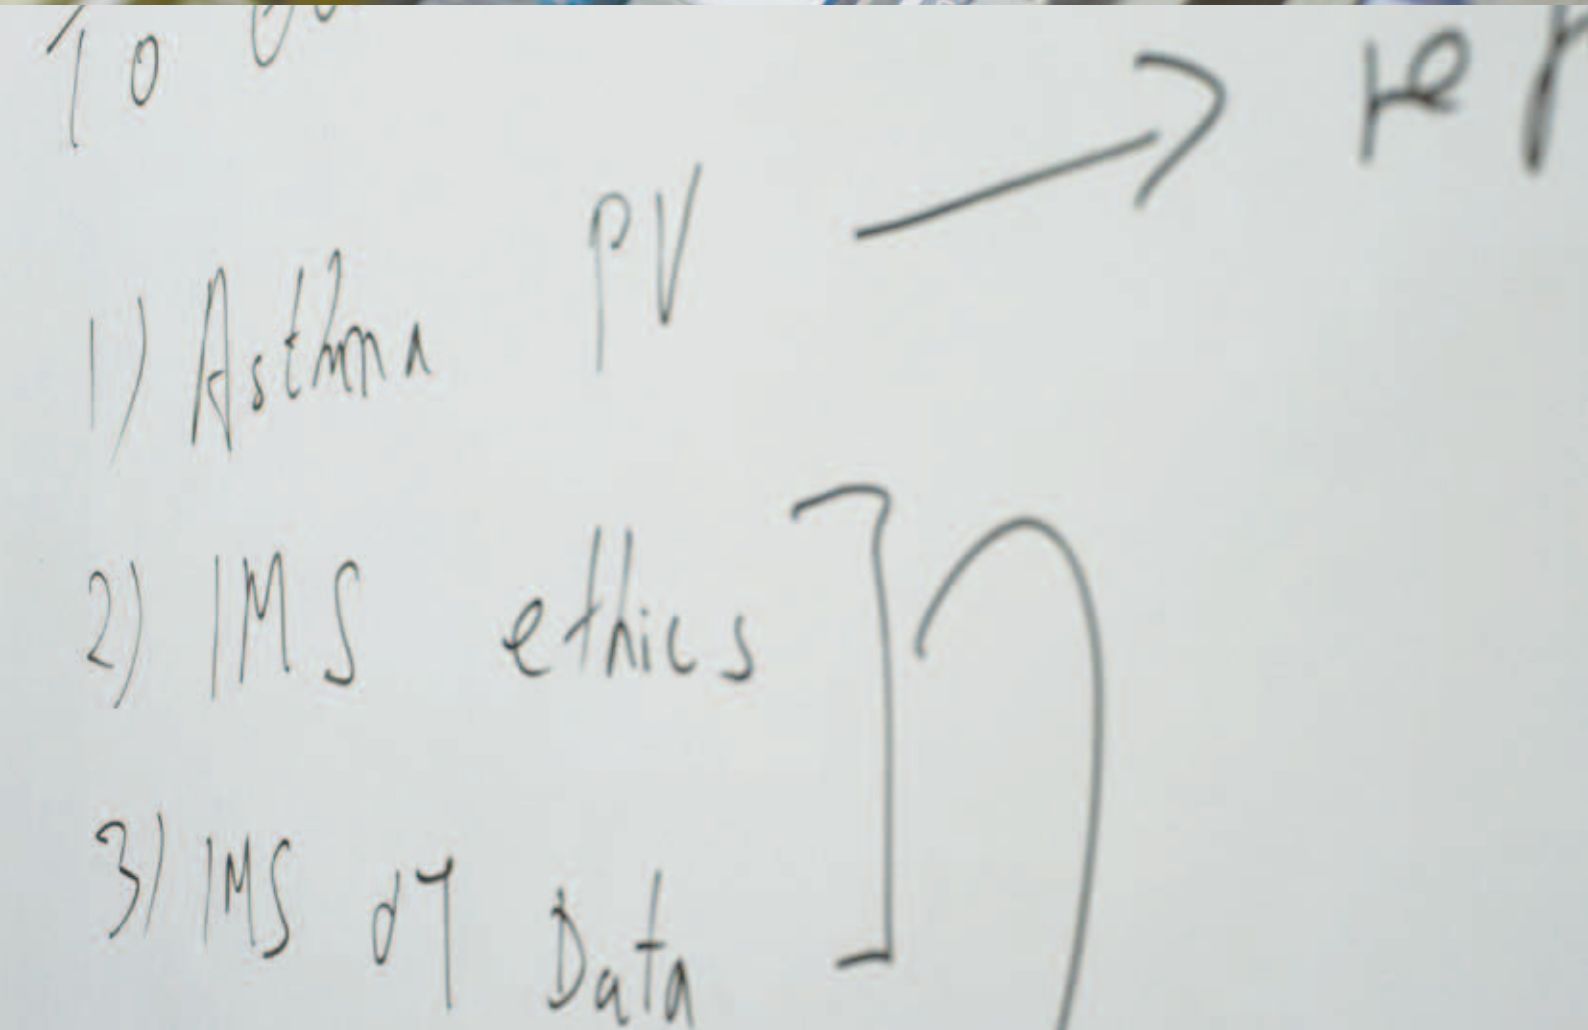 To
1) Asthma PV → rep
2) IMS ethics
3) IMS Data